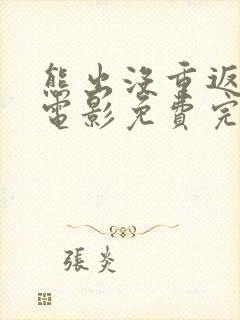 熊出没重返
电影免費完
張炎